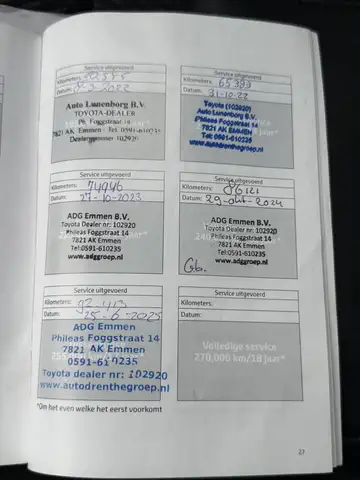 Service uitgevoerd
Kilometers:
Datum: 2022
Auto Lunenborg B.V.
TOYOTA-DEALER
Ph. Foggstraat 14
7821 AK Emmen Tel. 0591-610235
Dealernummer 102920
Service uitgevoerd
Kilometers: 65393
Datum: 31-10-22
Toyota (102920)
Auto Lunenborg B.V.
Phileas Foggstraat 14
7821 AK EMMEN
Tel: 0591-610235
www.autodrenthegroep.nl
Service uitgevoerd
Kilometers: 74946
Datum: 27-10-2023
ADG Emmen B.V.
Toyota Dealer nr: 102920
Phileas Foggstraat 14
7821 AK Emmen
Tel:0591-610235
www.adggroep.nl
Service uitgevoerd
Kilometers: 86121
Datum: 29-okt-2024
ADG Emmen B.V.
Toyota Dealer nr: 102920
Phileas Foggstraat 14
7821 AK Emmen
Tel:0591-610235
www.adggroep.nl
Gb.
Service uitgevoerd
Kilometers: 92-413
Datum: 25-6-2025
ADG Emmen
Phileas Foggstraat 14
7821 AK Emmen
0591-610235
Toyota dealer nr: 102920
www.autodrenthegroep.nl
Service uitgevoerd
Kilometers:
Datum:
Volledige service
270,000 km/18 jaar*
*Om het even welke het eerst voorkomt
27